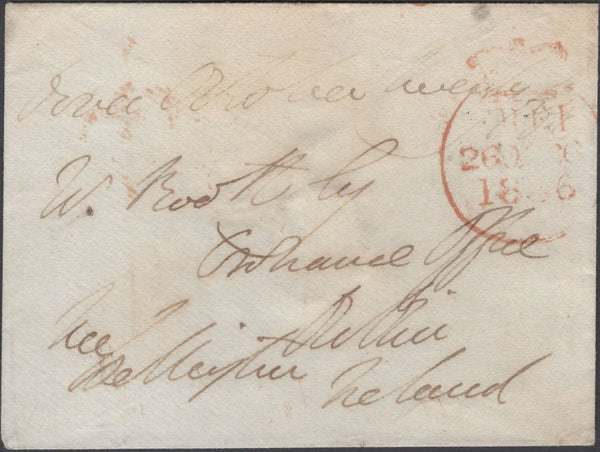 Dover October twenty
W. Booth Esq
Ordnance Office
Dublin
Wellington Ireland
26 OC
18 6